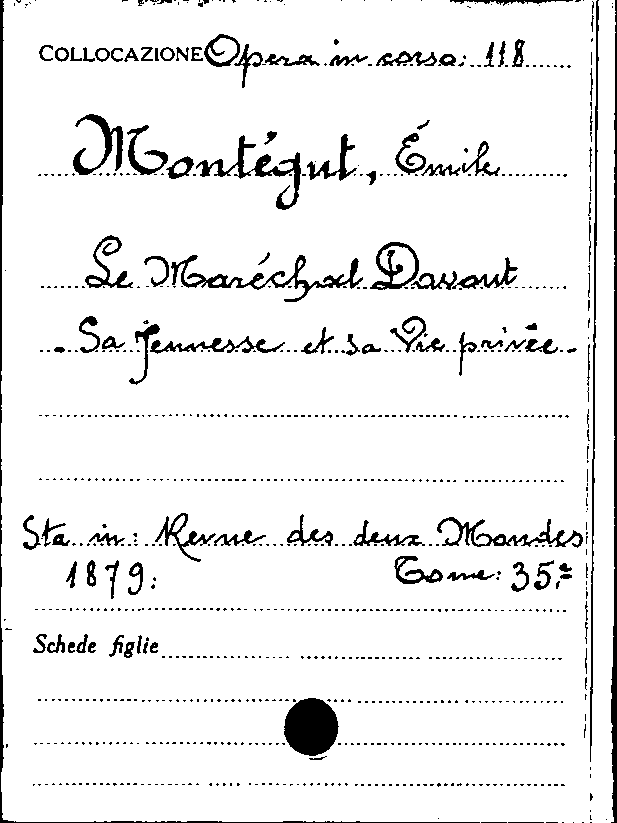 COLLOCAZIONE Opera in corso: 118
Montégut, Émile
Le Maréchal Davout
- Sa Jeunesse et sa Vie privée -
Sta in: Revue des deux Mondes
1879: Tome: 35.º
Schede figlie